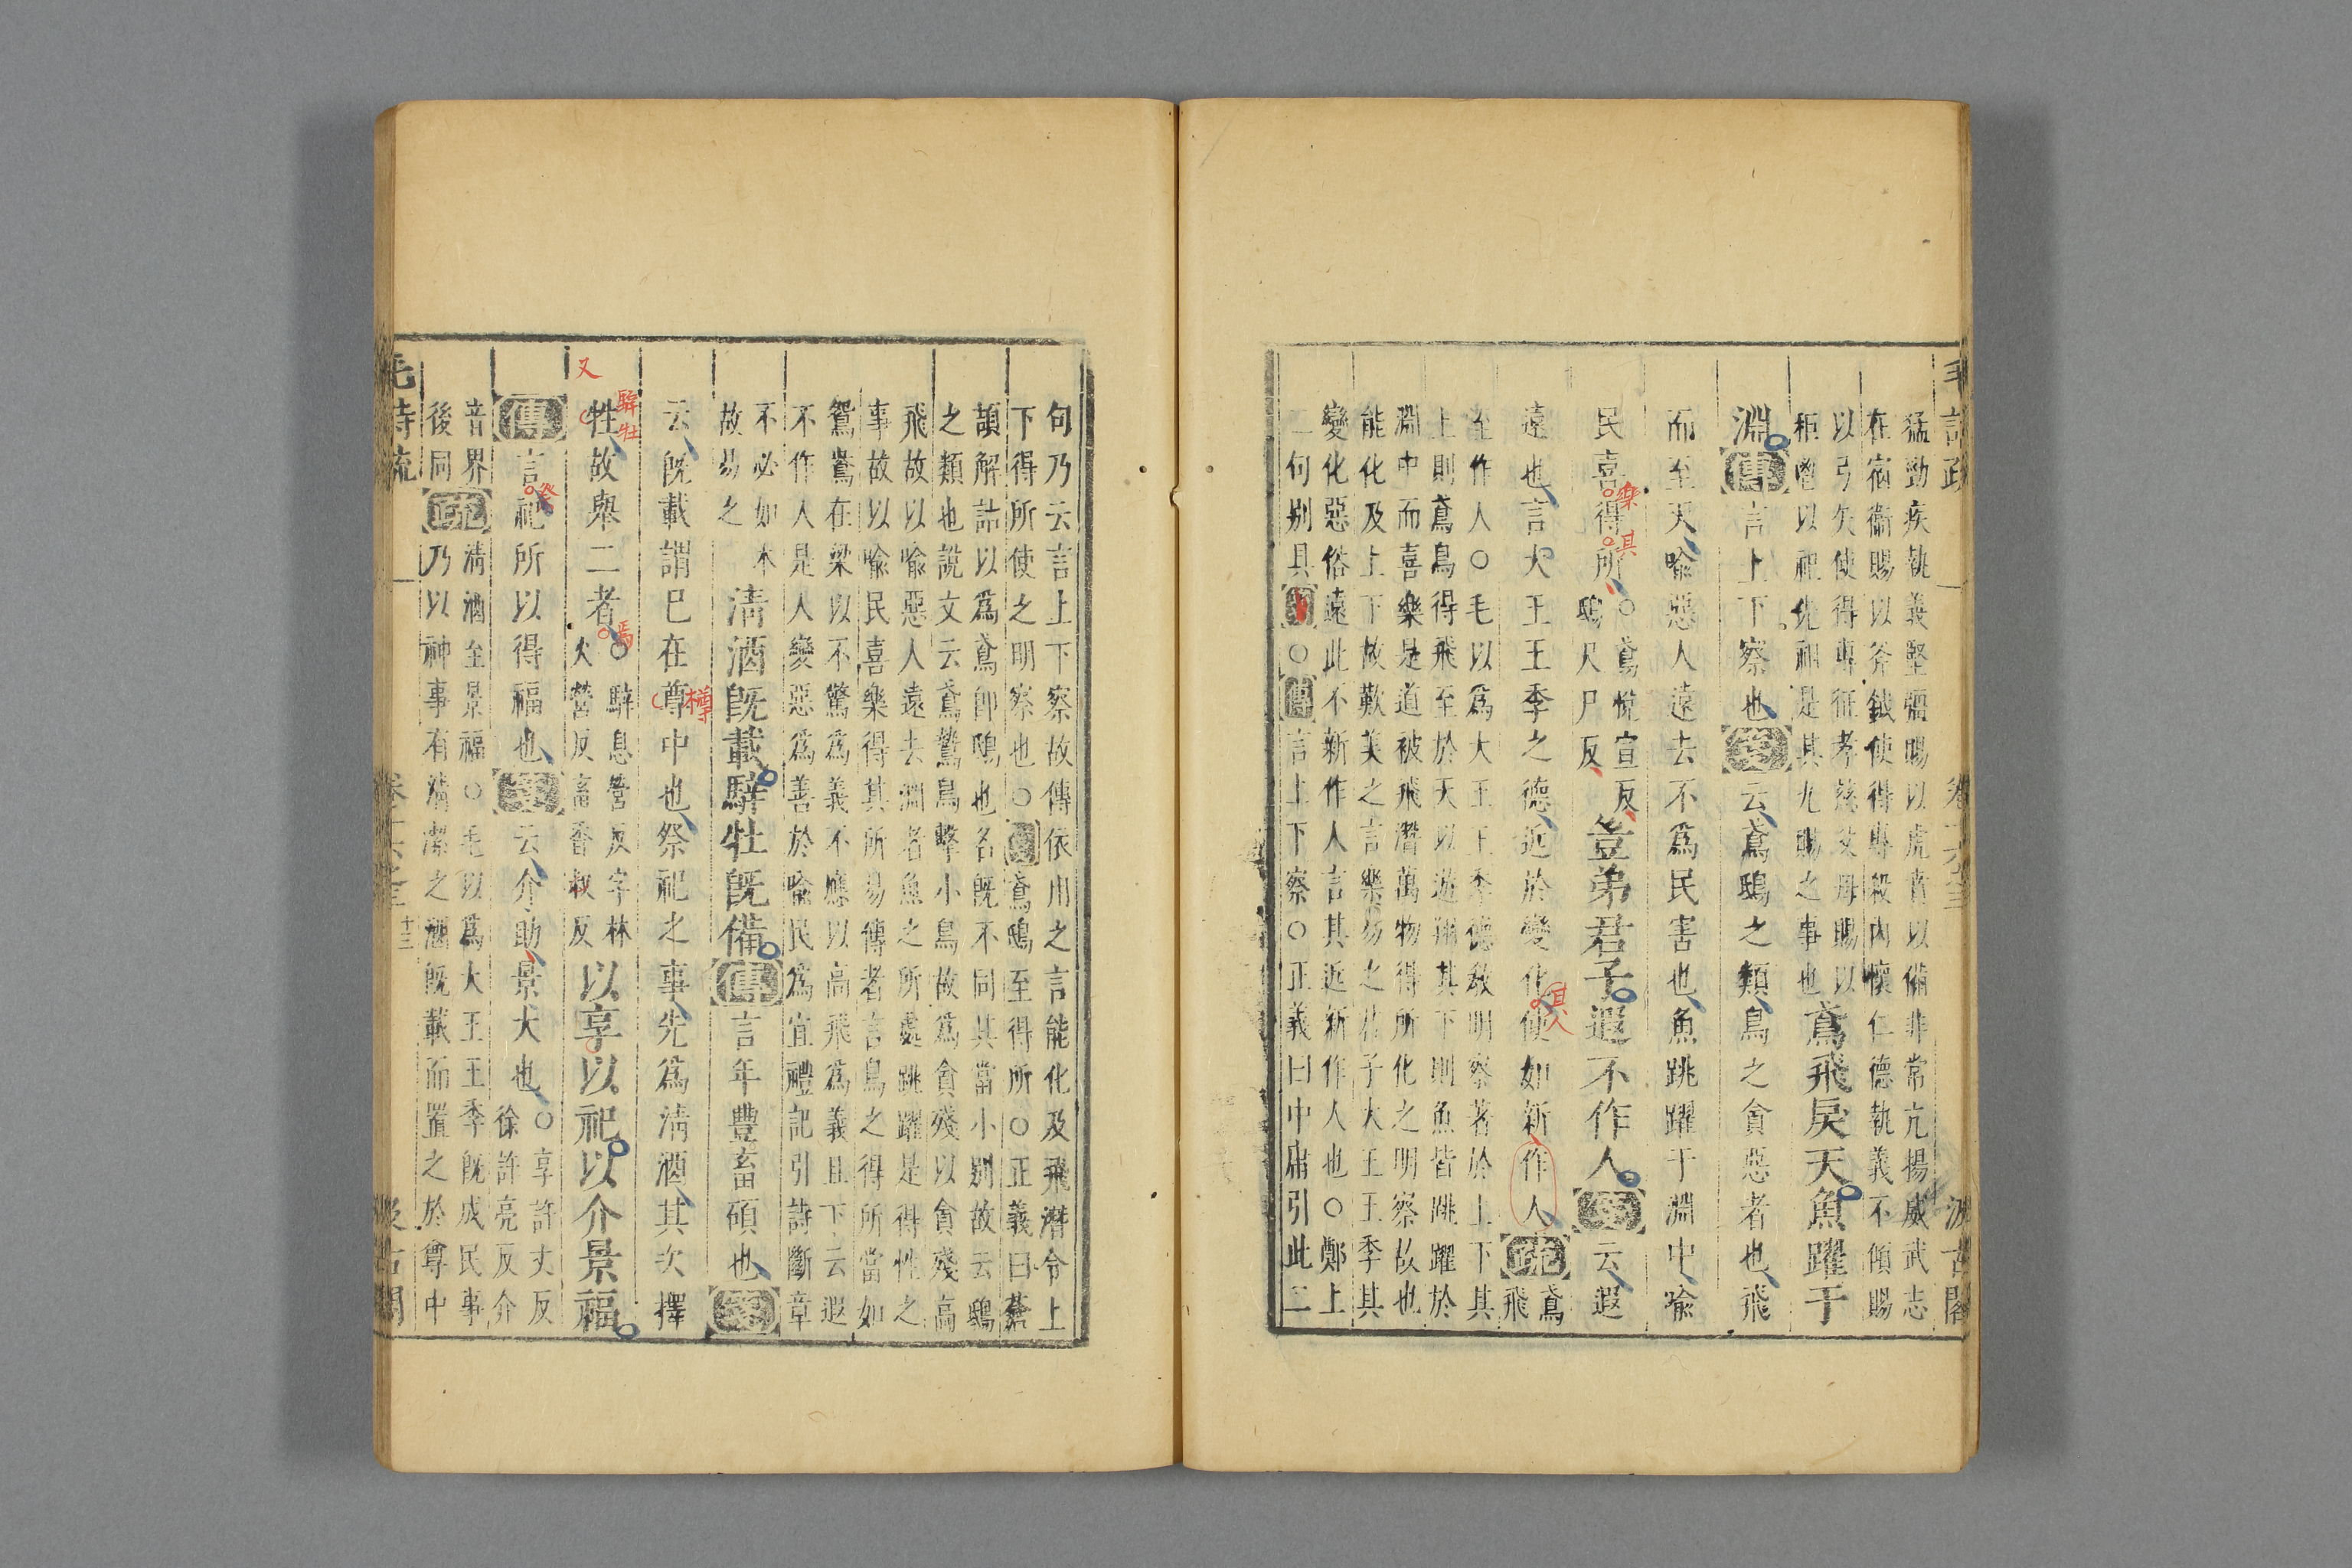 毛詩疏 卷十六之三 汲古閣
猛勁疾執義堅彊賜以虎賁以備非常亢揚威武志
在宿衞賜以斧鉞使得專殺內懷仁德執義不傾賜
以弓矢使得專征孝慈父母賜以
秬鬯以祀先祖是其九賜之事也
鳶飛戾天魚躍于
淵傳言上下察也箋云鳶鴟之類鳥之貪惡者也飛
而至天喻惡人遠去不爲民害也魚跳躍于淵中喻
民喜得所
樂
其
○鳶悅宣反
鴟尺尸反
豈弟君子遐不作人箋云遐
遠也言大王王季之德近於變化使如新作人疏
其人
鳶
飛
至作人○毛以爲大王王季德敎明察著於上下其
上則鳶鳥得飛至於天以遊翔其下則魚皆跳躍於
淵中而喜樂是道被飛潛萬物得所化之明察故也
能化及上下故歎美之言樂易之君子大王王季其
變化惡俗遠此不新作人言其近新作人也○鄭上
二句別具箋○傳言上下察○正義曰中庸引此二
句乃云言上下察故傳依用之言能化及飛潛令上
下得所使之明察也○箋鳶鴟至得所○正義曰蒼
頡解詁以爲鳶卽鴟也名旣不同其當小別故云鴟
之類也說文云鳶鷙鳥擊小鳥故爲貪殘以貪殘高
飛故以喻惡人遠去淵者魚之所處跳躍是得性之
事故以喻民喜樂得其所易傳者言鳥之得所當如
鴛鴦在梁以不驚爲義不應以高飛爲義且下云遐
不作人是人變惡爲善於喻民爲宜禮記引詩斷章
不必如本
故易之
淸酒旣載騂牡旣備傳言年豐畜碩也箋
云旣載謂巳在尊中也祭祀之事先爲淸酒其次擇
樽
騂牡
又
牲故舉二者
焉
○騂息營反字林
火營反畜香叔反
以享以祀以介景福
傳言祀所以得福也箋云介助景大也
祭
○享許丈反
徐許亮反介
音界
後同
疏
淸酒至景福○毛以爲大王王季旣成民事
乃以神事有淸潔之酒旣載而置之於尊中
毛詩疏 卷十六之三 十三 汲古閣